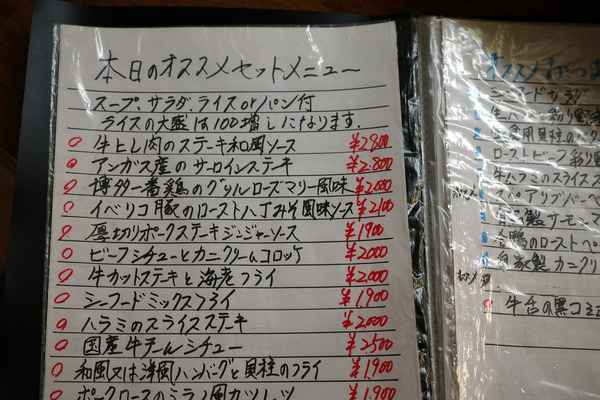 本日のオススメセットメニュー
スープ、サラダ、ライスorパン付
ライスの大盛は100増しになります.
牛とし肉のステーキ和風ソース ¥2800
アンガス産のサーロインステキ ¥2,800
博多一番鶏のグリルローズマリー風味 ¥2,000
イベリコ豚のロースト八丁みそ風味ソース ¥2,100
厚切りポークステーキジンジャーソース ¥1900
ビーフシチューとカニクリームコロッケ ¥2000
牛カットステーキと海老フライ ¥2,000
シーフードミックスフライ ¥1,900
ハラミのスライスステキ ¥2000
国産牛テールシチュー ¥2500
和風又は洋風ハンバーグと貝柱のフライ ¥1900
ポークロースのミラノ風カツレツ ¥1,900
オススメおつま
シーフードサラダ
ローストビーフ
牛ハラミのスライス
スペアリブバーベ
自家製サーモンマ
合鴨のローストペ
自家製カニクリ
牛舌の黒コ